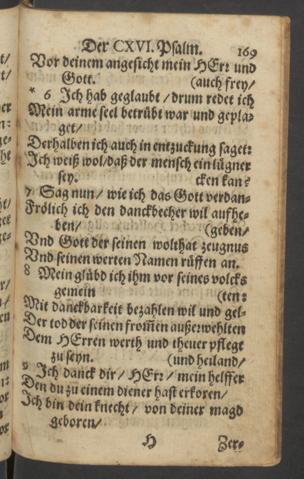 Der CXVI. Psalm. 169
Vor deinem angesicht mein HErr und
Gott. (auch frey/
* 6 Ich hab geglaubt / drum redet ich
Mein arme seel betrübt war und gepla-
get/
Derhalben ich auch in entzuckung saget:
Ich weiß wol/daß der mensch ein lügner
sey. cken kan?
7 Sag nun / wie ich das Gott verdan-
Frölich ich den danckbecher wil auffhe-
ben/ (geben/
Vnd Gott der seinen wolthat zeugnus
Vnd seinen werten Namen rüffen an.
8 Mein glübd ich ihm vor seines volcks
gemein (ten:
Mit danckbarkeit bezahlen wil und gel-
Der tod der seinen from̃en außerwehlten
Dem HErren werth und theuer pflegt
zu seyn. (und heiland/
9 Ich danck dir / HErr / mein helffer
Den du zu einem diener hast erkoren/
Ich bin dein knecht / von deiner magd
geboren/
H Zer-